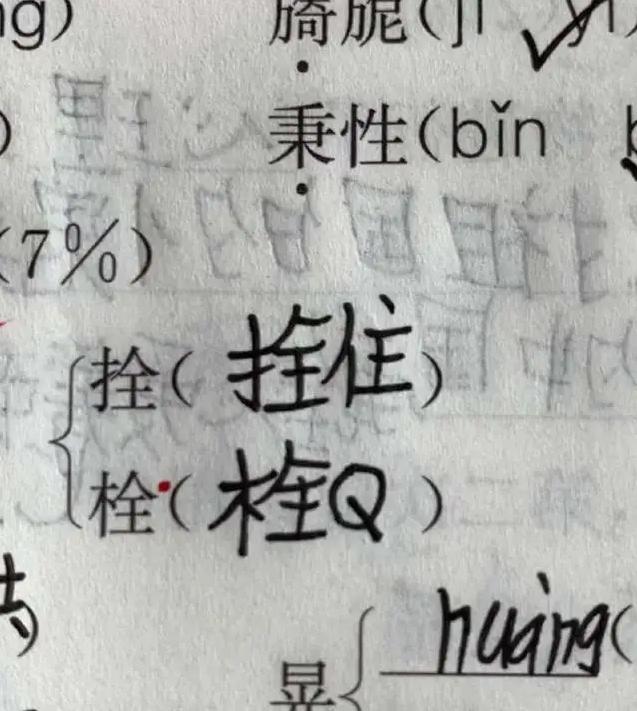 旖旎(jǐ yǐ)
秉性(bǐn
(7%)
拴(拴住)
栓(栓Q)
晃{ huàng(